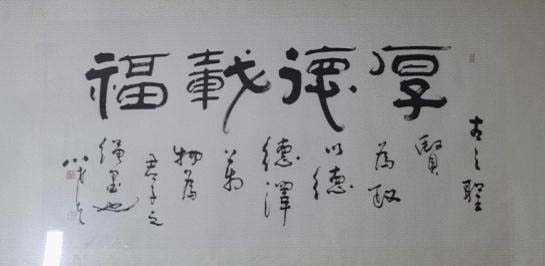 厚德載福
古之聖
賢
為政
以德
德澤
萬
物為
君子之
繩墨也